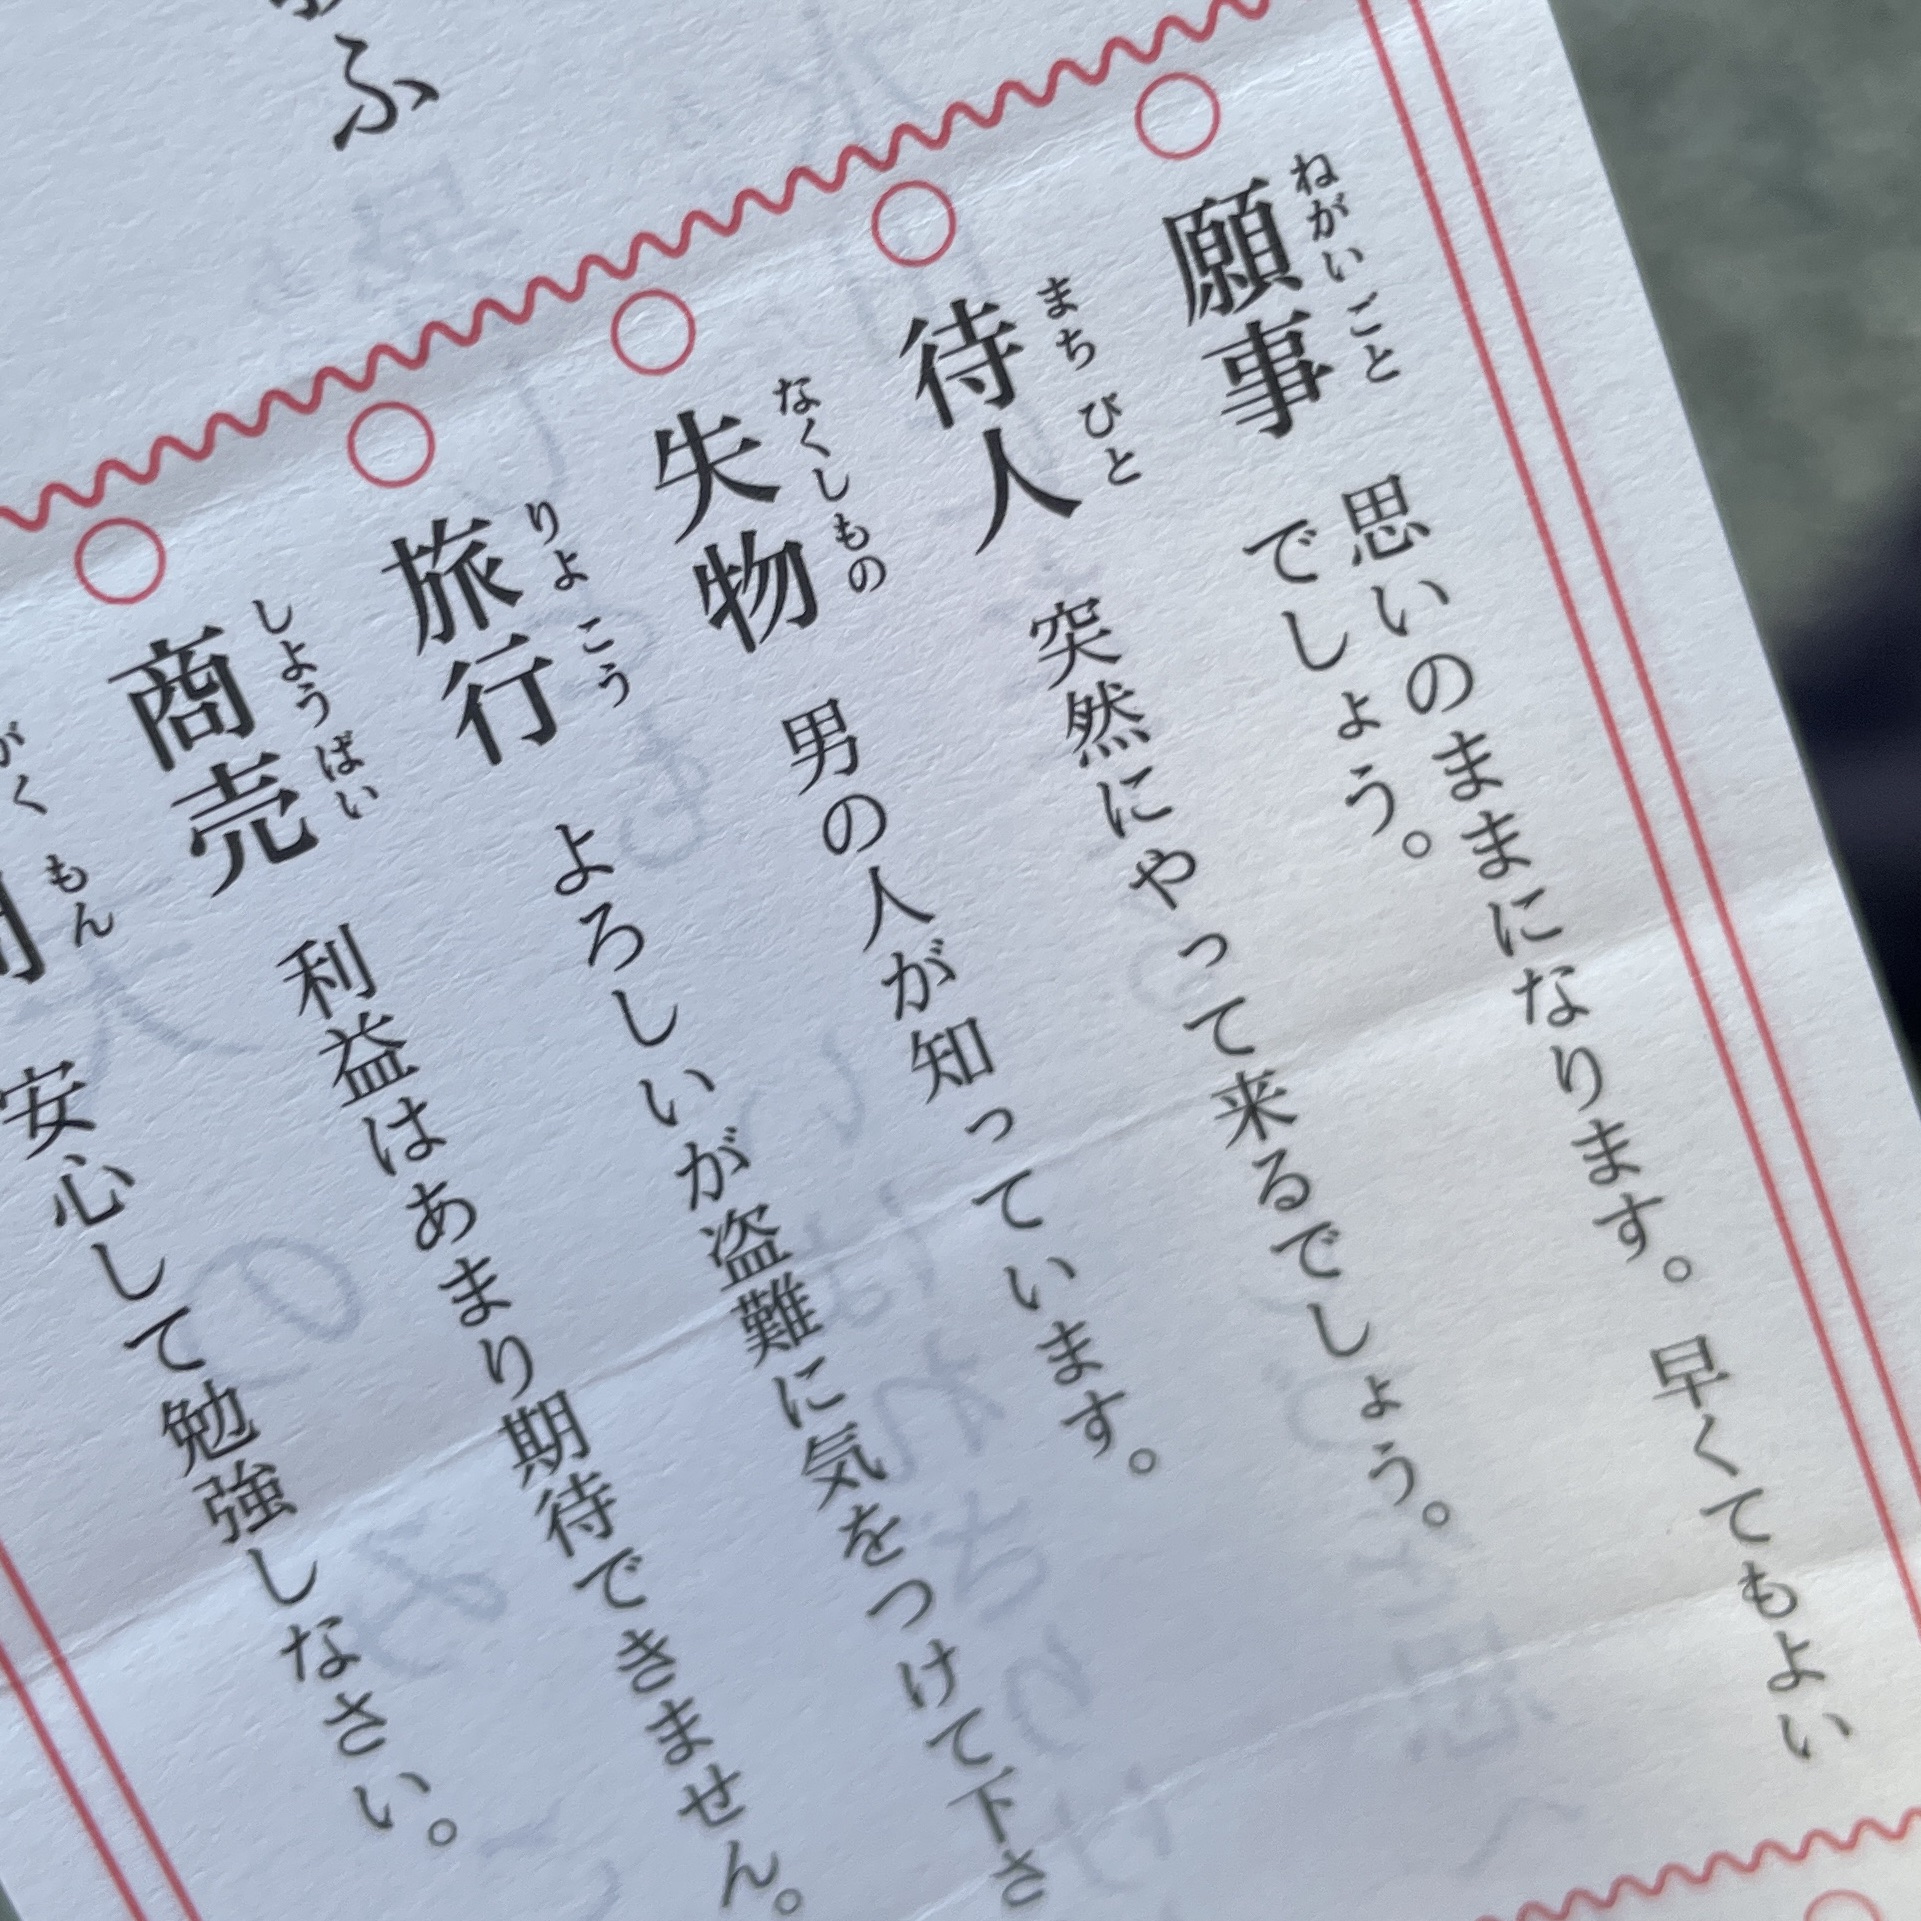 ねがいごと
願事
思いのままになります。早くてもよい
でしょう。
まちびと
待人
突然にやって来るでしょう。
なくしもの
失物
男の人が知っています。
りよこう
旅行
よろしいが盗難に気をつけて下さ
しようばい
商売
利益はあまり期待できません。
がくもん
安心して勉強しなさい。
ふ